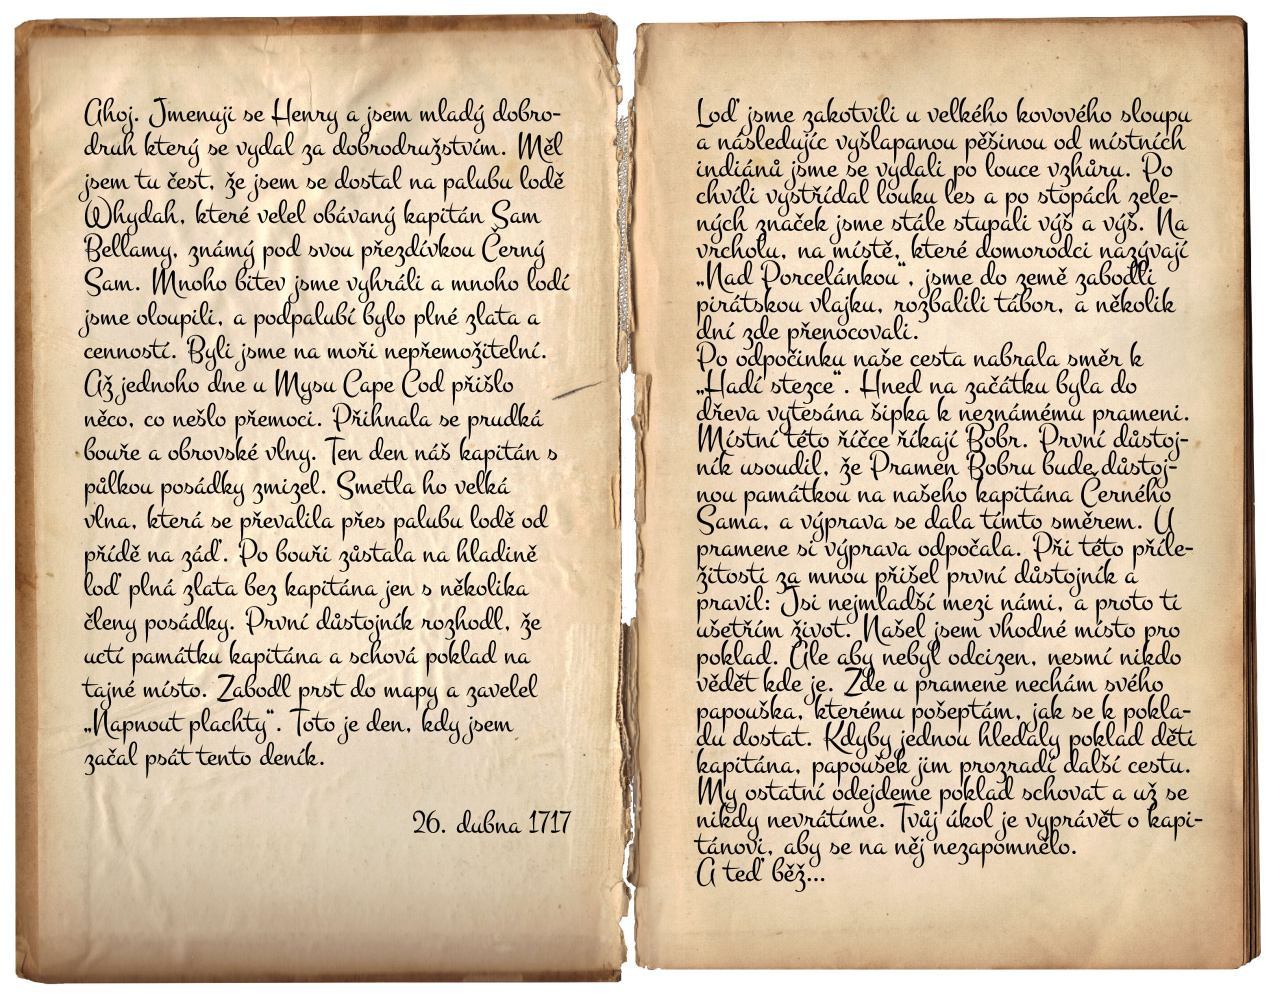 Ahoj. Jmenuji se Henry a jsem mladý dobro-
druh který se vydal za dobrodružstvím. Měl
jsem tu čest, že jsem se dostal na palubu lodě
Whydah, které velel obávaný kapitán Sam
Bellamy, známý pod svou přezdívkou Černý
Sam. Mnoho bitev jsme vyhráli a mnoho lodí
jsme oloupili, a podpalubí bylo plné zlata a
cenností. Byli jsme na moři nepřemožitelní.
Až jednoho dne u Mysu Cape Cod přišlo
něco, co nešlo přemoci. Přihnala se prudká
bouře a obrovské vlny. Ten den náš kapitán s
půlkou posádky zmizel. Smetla ho velká
vlna, která se převalila přes palubu lodě od
přídě na záď. Po bouři zůstala na hladině
loď plná zlata bez kapitána jen s několika
členy posádky. První důstojník rozhodl, že
uctí památku kapitána a schová poklad na
tajné místo. Zabodl prst do mapy a zavelel
„Napnout plachty“. Toto je den, kdy jsem
začal psát tento deník.
26. dubna 1717
Loď jsme zakotvili u velkého kovového sloupu
a následujíc vyšlapanou pěšinou od místních
indiánů jsme se vydali po louce vzhůru. Po
chvíli vystřídal louku les a po stopách zele-
ných značek jsme stále stupali výš a výš. Na
vrcholu, na místě, které domorodci nazývají
„Nad Porcelánkou“, jsme do země zabodli
pirátskou vlajku, rozbalili tábor, a několik
dní zde přenocovali.
Po odpočinku naše cesta nabrala směr k
„Hadí stezce“. Hned na začátku byla do
dřeva vytesána šipka k neznámému prameni.
Místní této říčce říkají Bobr. První důstoj-
ník usoudil, že Pramen Bobru bude důstoj-
nou památkou na našeho kapitána Černého
Sama, a výprava se dala tímto směrem. U
pramene si výprava odpočala. Při této příle-
žitosti za mnou přišel první důstojník a
pravil: Jsi nejmladší mezi námi, a proto ti
ušetřím život. Našel jsem vhodné místo pro
poklad. Ale aby nebyl odcizen, nesmí nikdo
vědět kde je. Zde u pramene nechám svého
papouška, kterému pošeptám, jak se k pokla-
du dostat. Kdyby jednou hledaly poklad děti
kapitána, papoušek jim prozradí další cestu.
My ostatní odejdeme poklad schovat a už se
nikdy nevrátíme. Tvůj úkol je vyprávět o kapi-
tánovi, aby se na něj nezapomnělo.
A teď běž...